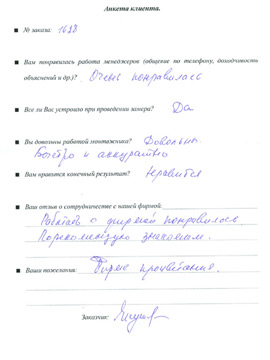 Анкета клиента.
№ заказа: 1618
Вам понравилась работа менеджеров (общение по телефону, доходчивость
объяснений и др.)? Очень понравилась
Все ли Вас устроило при проведении замера? Да
Вы довольны работой монтажника? Довольны.
Быстро и аккуратно
Вам нравится конечный результат? Нравится
Ваш отзыв о сотрудничестве с нашей фирмой
Работать с фирмой понравилось
Порекомендую знакомым.
Ваши пожелания: Фирме процветания.
Заказчик: